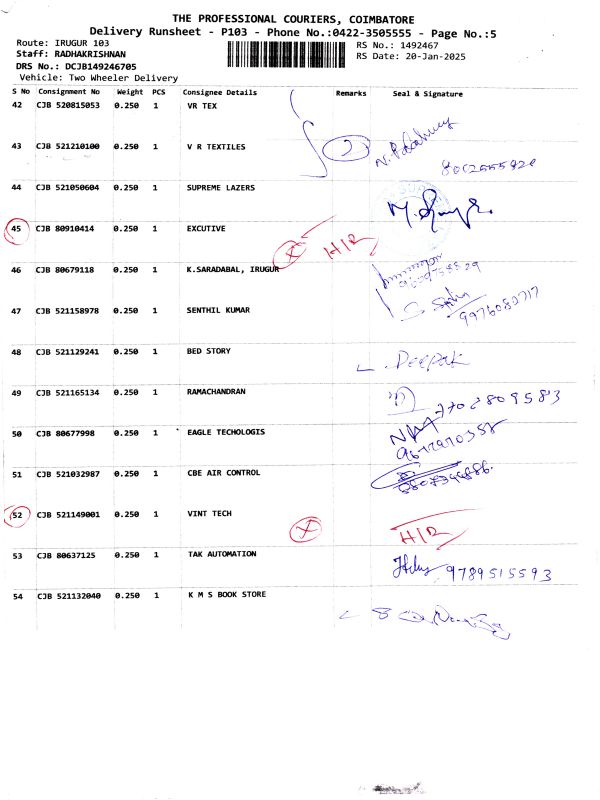 THE PROFESSIONAL COURIERS, COIMBATORE
Delivery Runsheet - P103 - Phone No.:0422-3505555 - Page No.:5
Route: IRUGUR 103 RS No.: 1492467
Staff: RADHAKRISHNAN RS Date: 20-Jan-2025
DRS No.: DCJB149246705
Vehicle: Two Wheeler Delivery
S No Consignment No Weight PCS Consignee Details Remarks Seal & Signature
42 CJB 520815053 0.250 1 VR TEX
43 CJB 521210100 0.250 1 V R TEXTILES 2
44 CJB 521050604 0.250 1 SUPREME LAZERS
45 CJB 80910414 0.250 1 EXCUTIVE X H/R
46 CJB 80679118 0.250 1 K.SARADABAL, IRUGUR
47 CJB 521158978 0.250 1 SENTHIL KUMAR 9976082717
48 CJB 521129241 0.250 1 BED STORY Deepak
49 CJB 521165134 0.250 1 RAMACHANDRAN 7702809583
50 CJB 80677998 0.250 1 EAGLE TECHOLOGIS
51 CJB 521032987 0.250 1 CBE AIR CONTROL
52 CJB 521149001 0.250 1 VINT TECH X H/R
53 CJB 80637125 0.250 1 TAK AUTOMATION 9789515593
54 CJB 521132040 0.250 1 K M S BOOK STORE